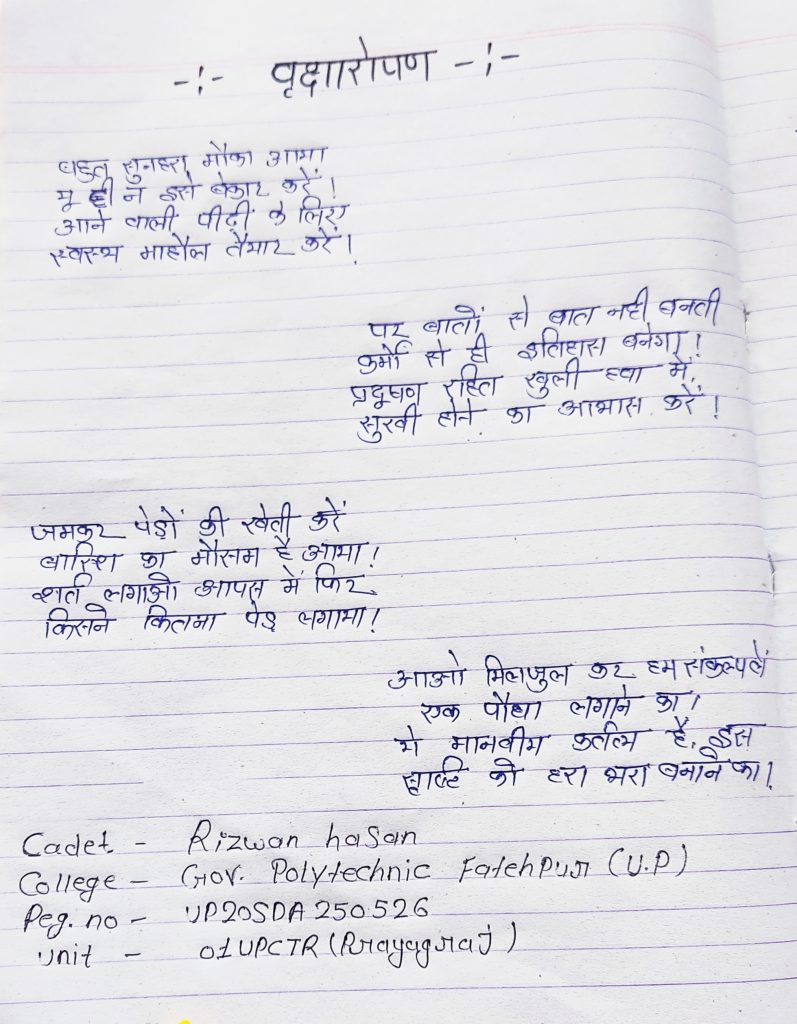 -:- वृक्षारोपण -:-
बहुत सुनहरा मौका आया
यू ही न इसे बेकार करें।
आने वाली पीढ़ी के लिए
स्वस्थ माहौल तैयार करें।
पर बातों से बात नही बनती
कर्मो से ही इतिहास बनेगा।
प्रदूषण रहित खुली हवा में,
सुखी होने का आभास करें।
जमकर पेड़ों की खेती करें
बारिश का मौसम है आया।
शर्त लगाओ आपस में फिर
किसने कितना पेड़ लगाया।
आओ मिलजुल कर हम संकल्प लें
एक पौधा लगाने का।
ये मानवीय कर्तव्य है, इस
सृष्टि को हरा भरा बनाने का।
Cadet - Rizwan hasan
College - Gov. Polytechnic Fatehpur (U.P)
Reg. no - UP20SDA250526
Unit - 01UPCTR (Prayagraj)